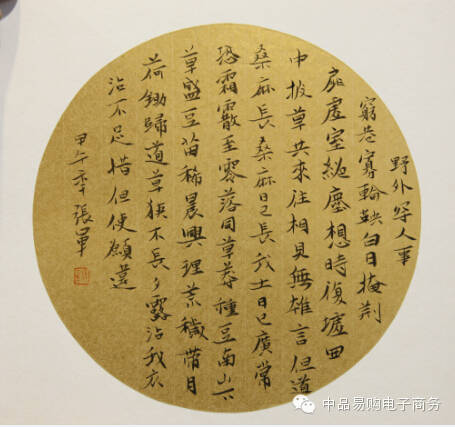 野外罕人事
窮巷寡輪鞅白日掩荊
扉虛室絕塵想時復墟曲
中披草共來往相見無雜言但道
桑麻長桑麻日已長我土日已廣常
恐霜霰至零落同草莽種豆南山下
草盛豆苗稀晨興理荒穢帶月
荷鋤歸道草狹木長夕露沾我衣
沾不足惜但使願違
甲午年張
中品易购电子商务